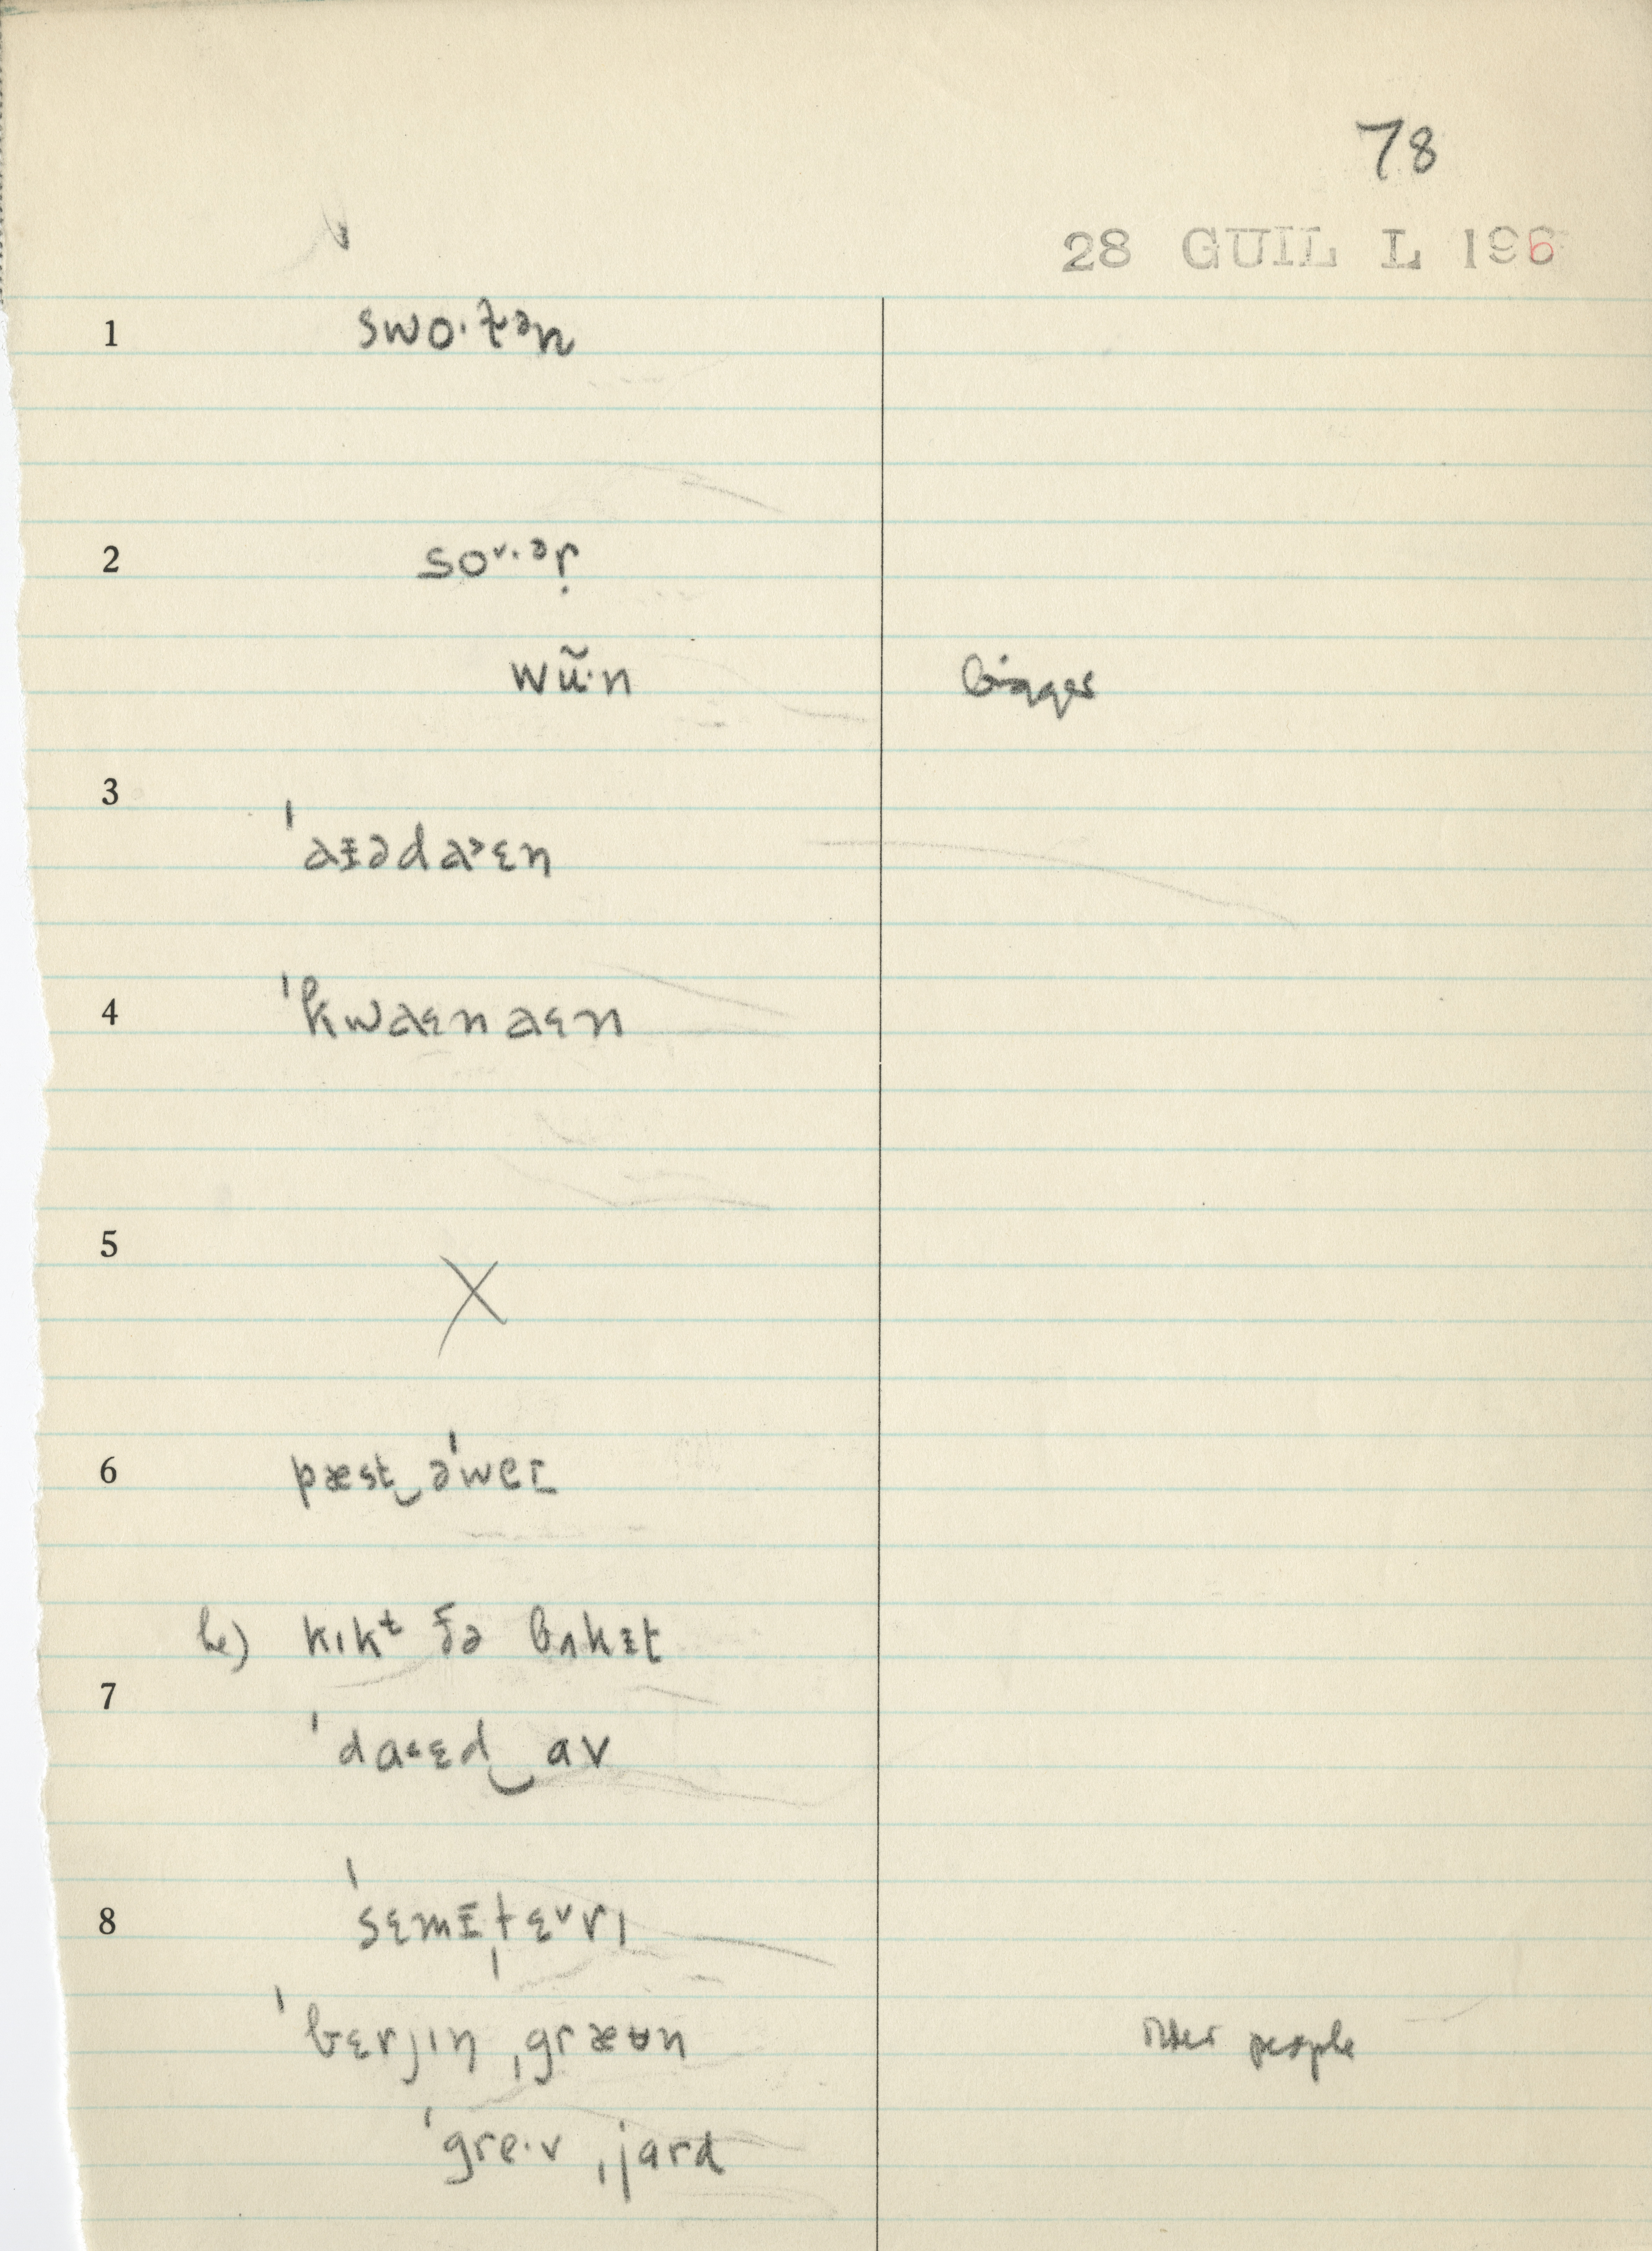 78
28 GUIL L 196
1 swo·t̬ən
2 so˅·ər̩
wũ·n bigger
3 ˈaɪəda˃ɛn
4 ˈkwaɛnaɛn
5 X
6 pæst‿əˈweɪ
h) kɪkᵗ ðə bʌkɪt
7 ˈdaˑɛd‿av
8 ˈsɛmɪˌtɛ˅rɪ
ˈbɛrjɪŋ ˌgræʊn older people
ˈgre·v ˌjard